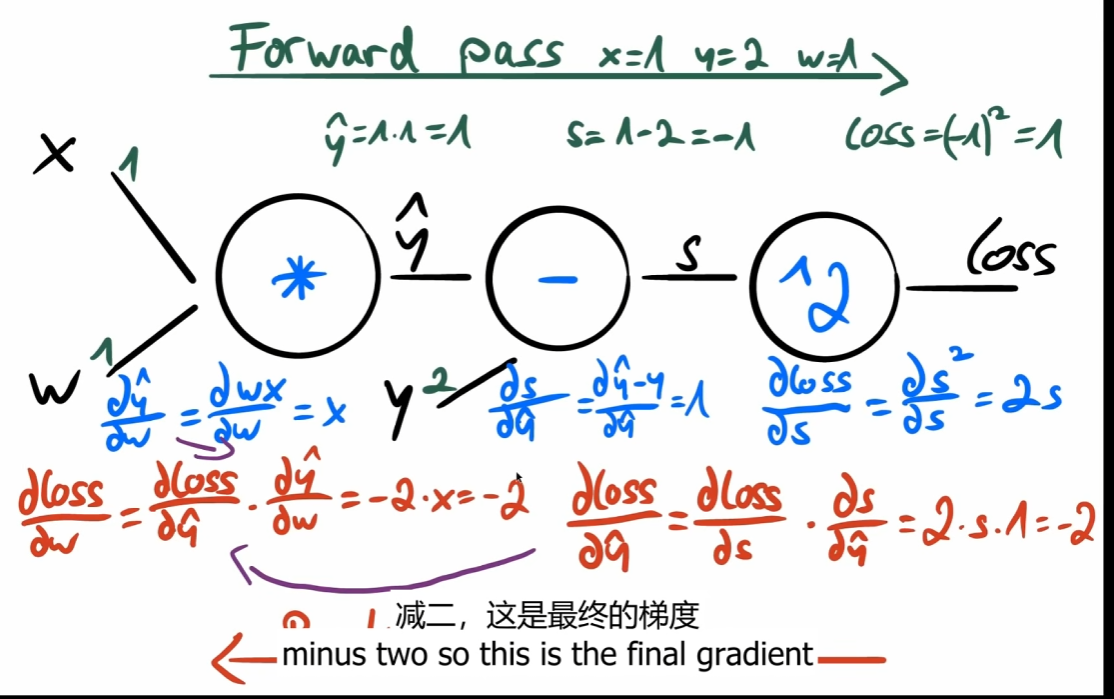 Forward pass x=1 y=2 w=1
ŷ=1·1=1 s=1-2=-1 loss=(-1)²=1
x 1
* ŷ - s ^2 loss
w 1 y 2
∂ŷ/∂w = ∂wx/∂w = x ∂s/∂ŷ = ∂ŷ-y/∂ŷ = 1 ∂loss/∂s = ∂s²/∂s = 2s
∂loss/∂w = ∂loss/∂ŷ · ∂ŷ/∂w = -2·x = -2 ∂loss/∂ŷ = ∂loss/∂s · ∂s/∂ŷ = 2·s·1 = -2
减二，这是最终的梯度
minus two so this is the final gradient